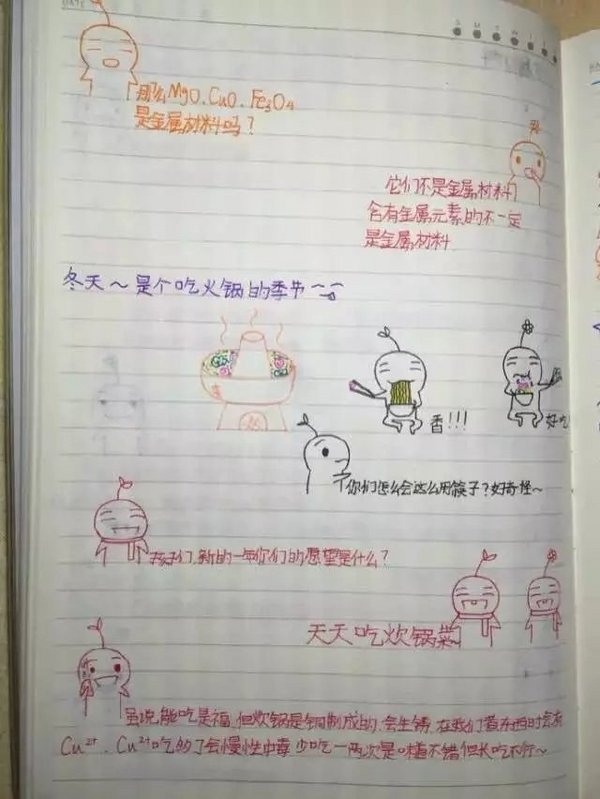 DATE
S M T W T F S
那么MgO、CuO、Fe3O4
是金属材料吗?
它们不是金属材料
含有金属元素的不一定
是金属材料
冬天~是个吃火锅的季节~
香!!!
好吃
你们怎么会这么用筷子?好奇怪~
孩纸们,新的一年你们的愿望是什么?
天天吃炊锅菜
虽说能吃是福,但炊锅是铜制成的,会生锈,在我们煮东西时会有
Cu²⁺、Cu²⁺吃的了会慢性中毒 少吃一两次是味道不错但长吃不行~